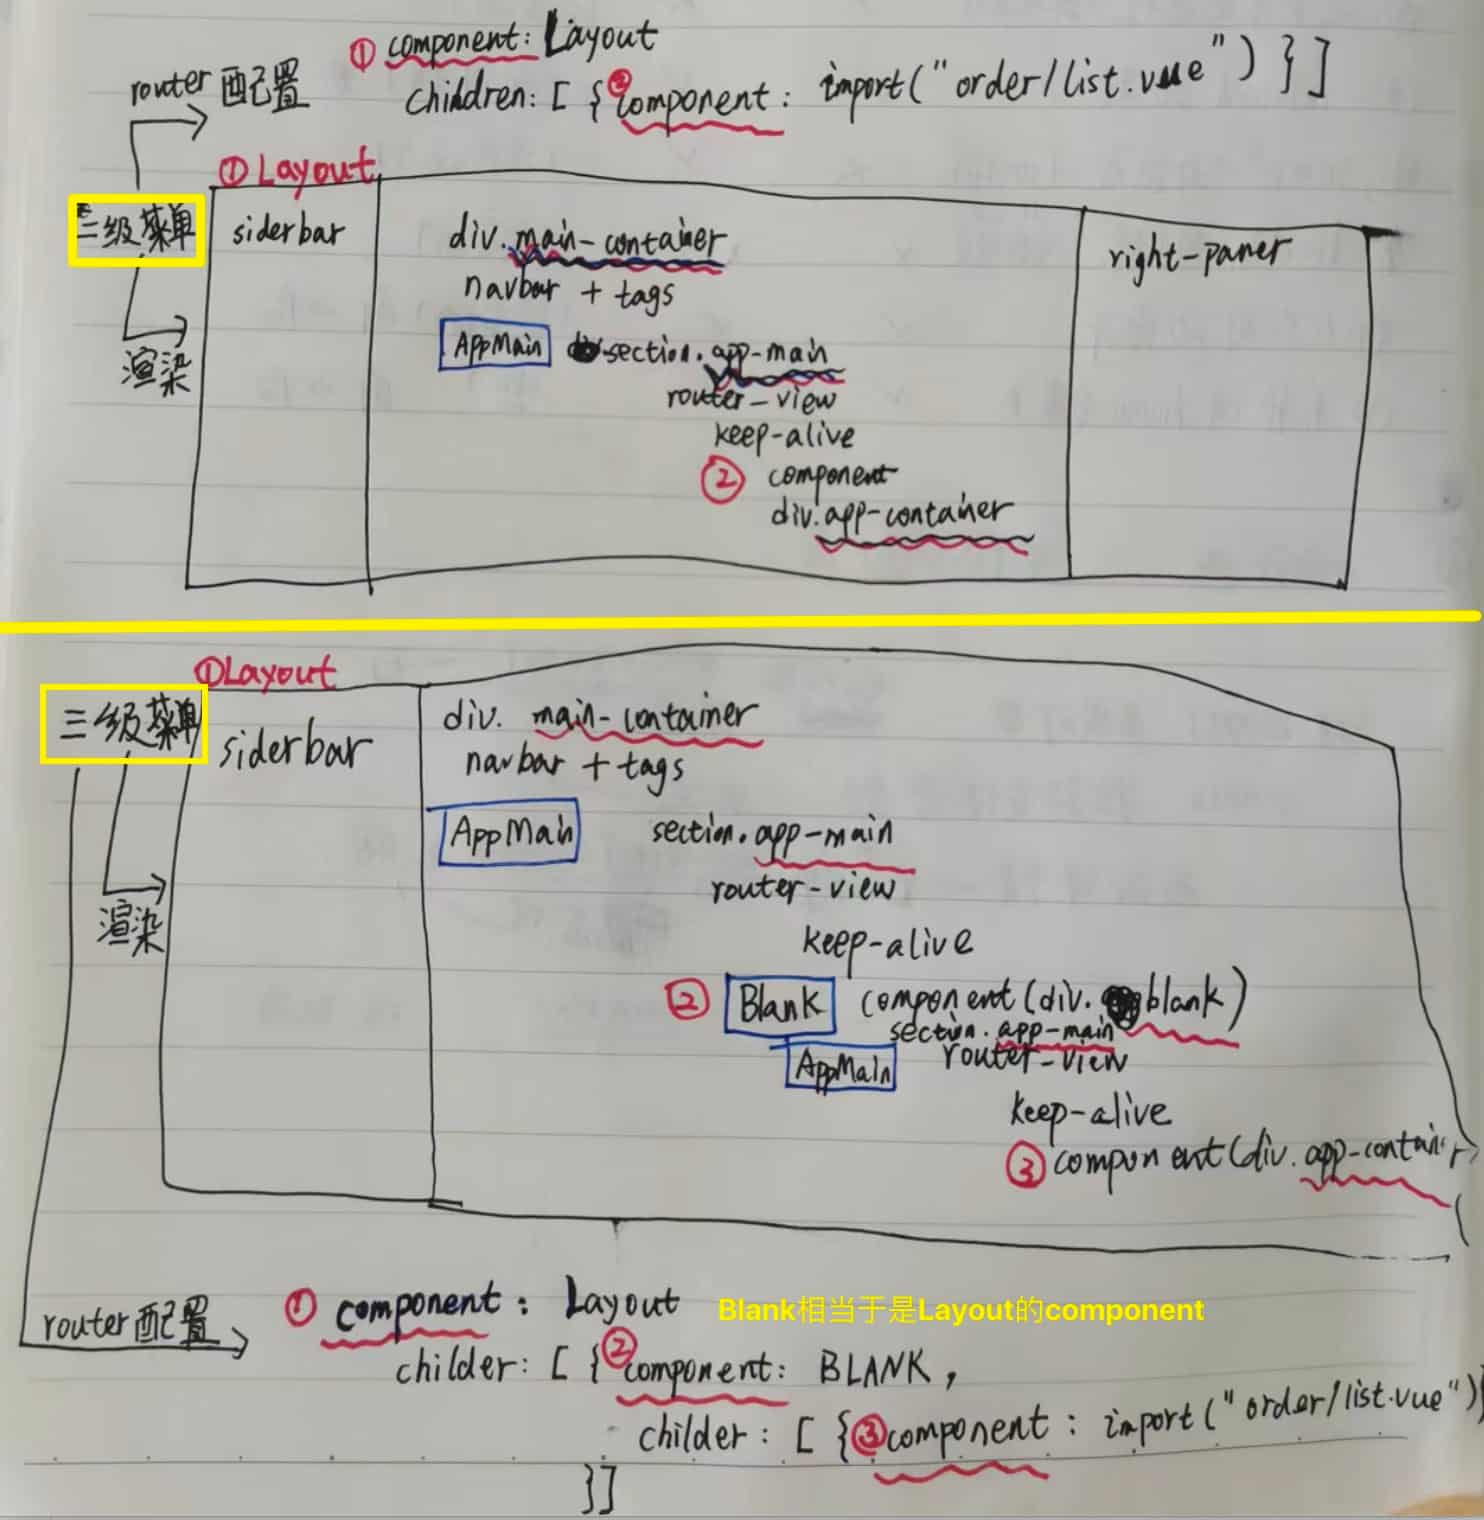 ① component: Layout
router 配置
chiildren: [ { ② component: import("order/list.vue") } ]
① Layout
二级菜单
siderbar
div.main-container
right-paner
navbar + tags
渲染
AppMain section.app-main
router-view
keep-alive
② component
div.app-container
① Layout
三级菜单
siderbar
div. main-container
navbar + tags
AppMain section.app-main
router-view
渲染
keep-alive
② Blank component(div. blank)
section.app-main
AppMain router-view
keep-alive
③ component(div.app-container
① component: Layout Blank相当于是Layout的component
router配置
childer: [ { ② component: BLANK,
childer: [ { ③ component: import("order/list.vue")}
}]